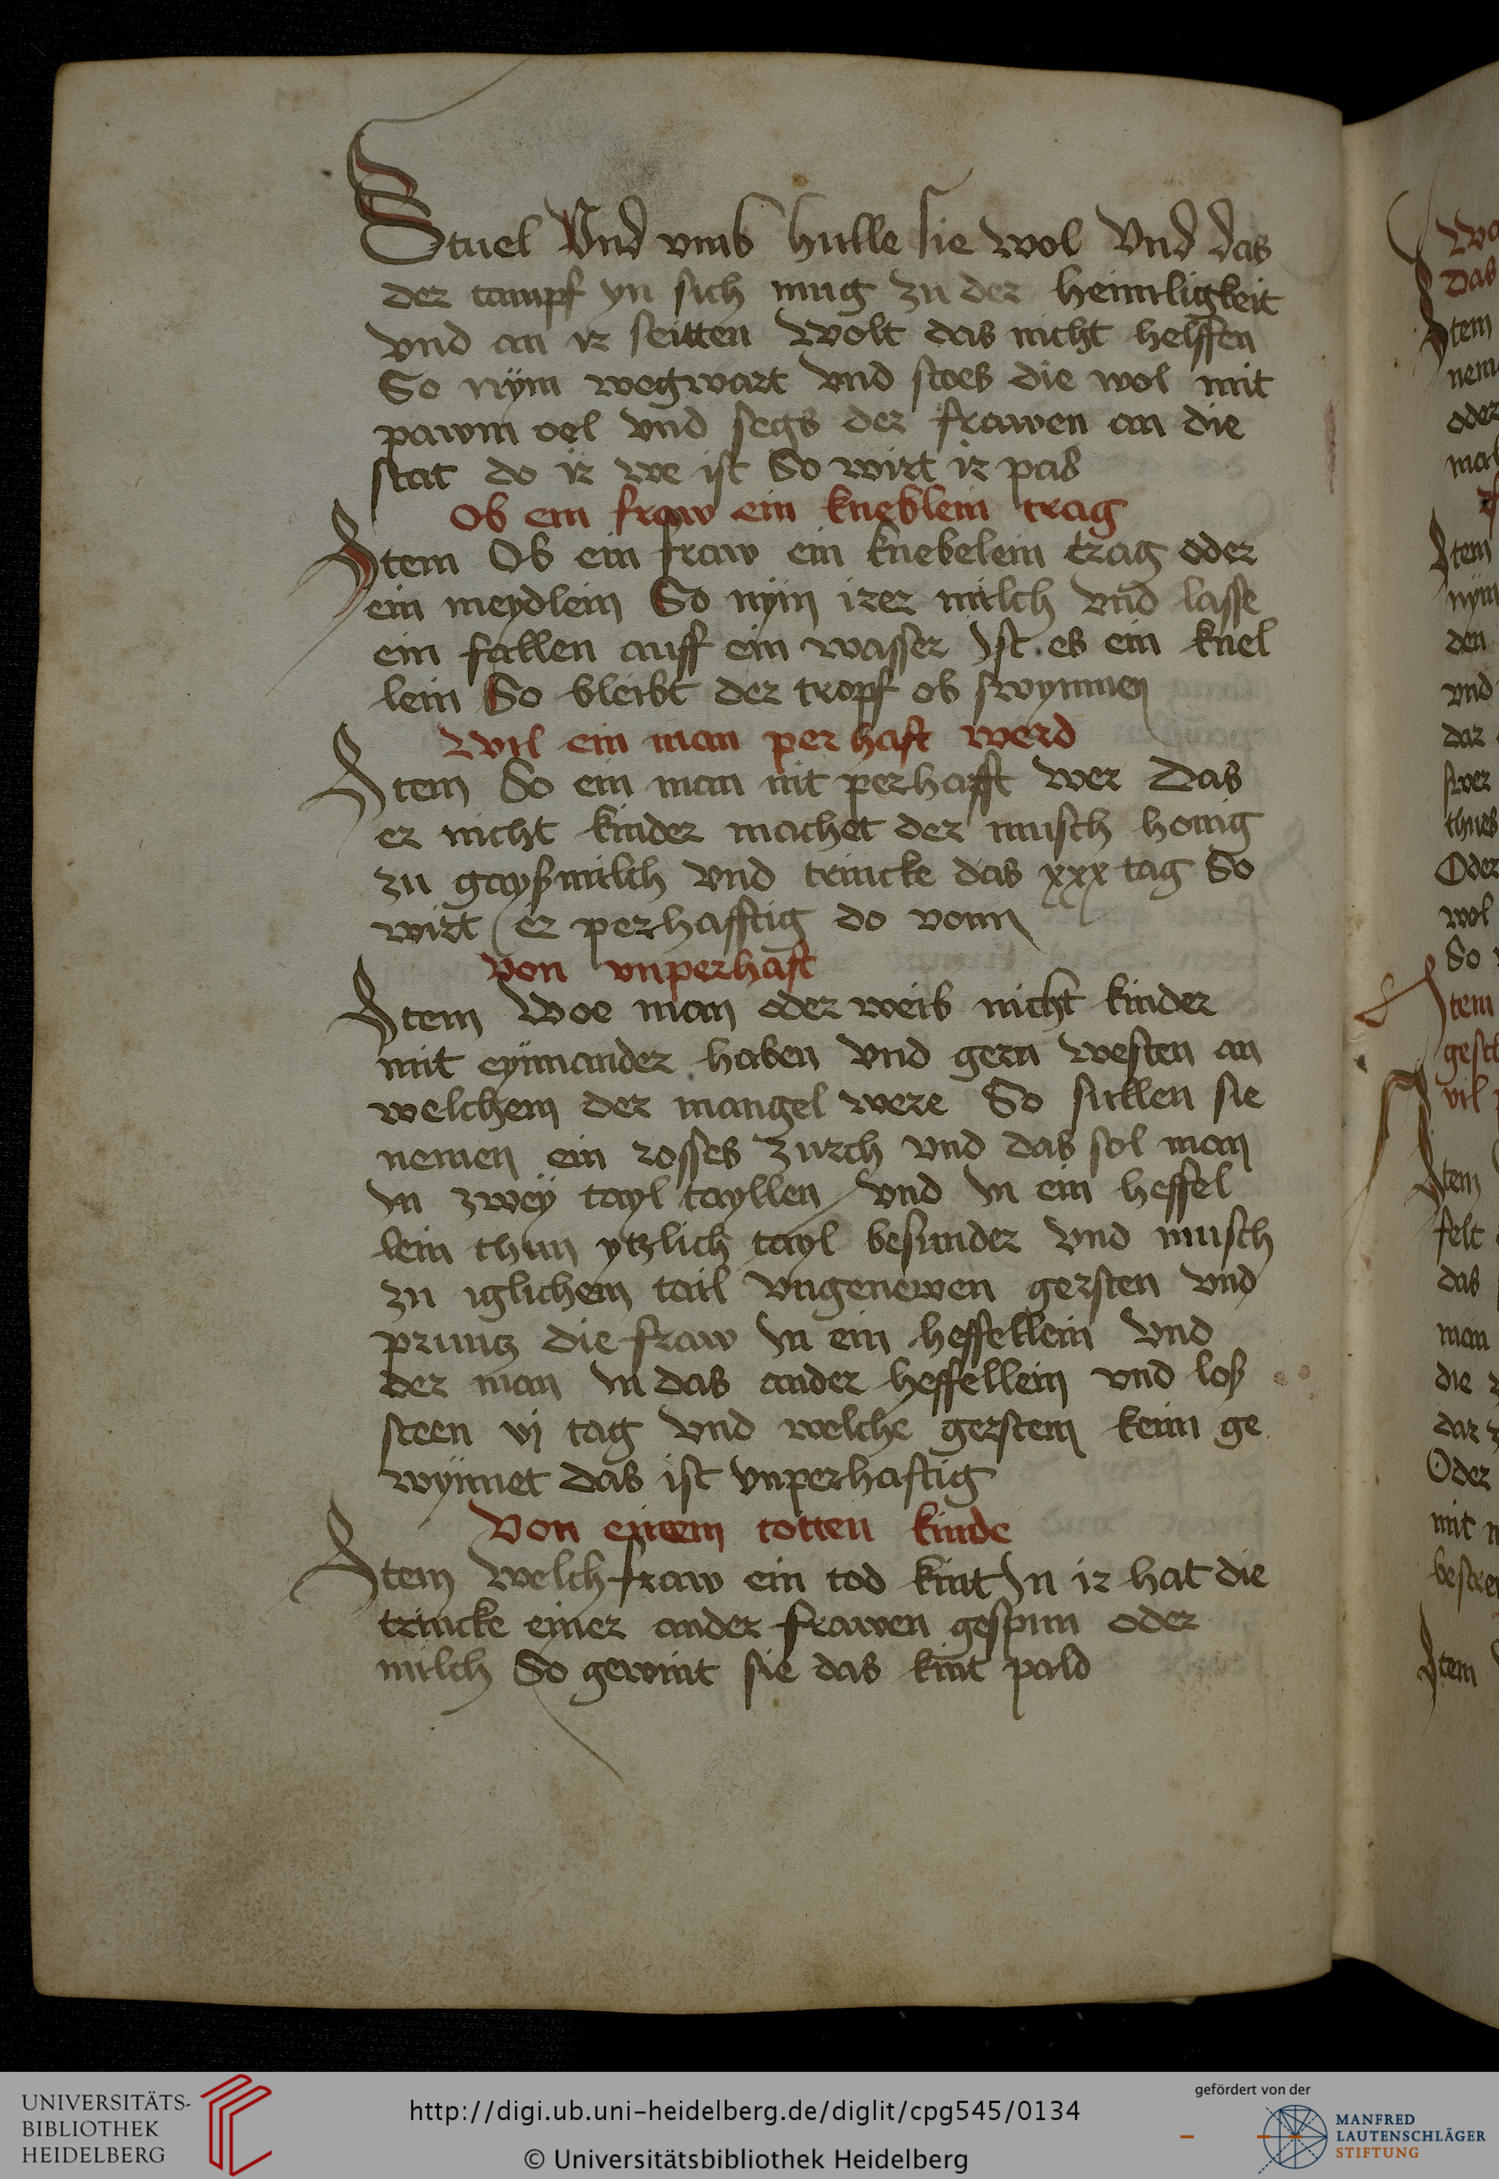 Stuel Vnd vmb hulle sie wol Vnd das
der tampf yn sich mug zu der heimligkeit
vnd an ir seitten Wolt das nicht helffen
So nÿm wegwart vnd stoes die wol mit
pawm oel vnd segs der frawen an die
stat do ir we ist So wirt ir pas
Ob ein fraw ein kneblein trag
Item Ob ein fraw ein knebelein trag oder
ein meydlein So nÿm irer milch vnd lasse
ein fallen auff ein wasser Ist es ein knel
lein So bleibt der tropf ob swymmen
Wil ein man perhaft werd
Item So ein man nit perhafft wer Das
er nicht kinder machet der musch honig
zu gayßmilch vnd trincke das xxx tag So
wirt er perhafftig do vonn
Von vnperhaft
Item Woe man oder weib nicht kinder
mit eynnander haben vnd gern westen an
welchem der mangel were So sullen sie
nemen ein rosses zurch vnd das sol man
In zweÿ tayl tayllen vnd In ein heffel
lein thun ytzlich tayl besunder vnd musch
zu iglichem tail vngenewen gersten vnd
pruntz die fraw In ein heffellein vnd
der man In das ander heffellein vnd loß
steen vj tag vnd welche gerstem keim ge
wÿnnet das ist vnperhaftig
Von einem totten kinde
Item Welch fraw ein tod kint In ir hat die
trincke einer ander frawen gespun oder
milch So gewint sie das kint pald
Das
Item
oder
Item
den
vnd
dar
swer
thues
Oder
wol
So
Item
vil
Item
felt
das
man
die
dar
Oder
mit
Item
UNIVERSITÄTS-
BIBLIOTHEK
HEIDELBERG
http://digi.ub.uni-heidelberg.de/diglit/cpg545/0134
© Universitätsbibliothek Heidelberg
gefördert von der
MANFRED
LAUTENSCHLÄGER
STIFTUNG